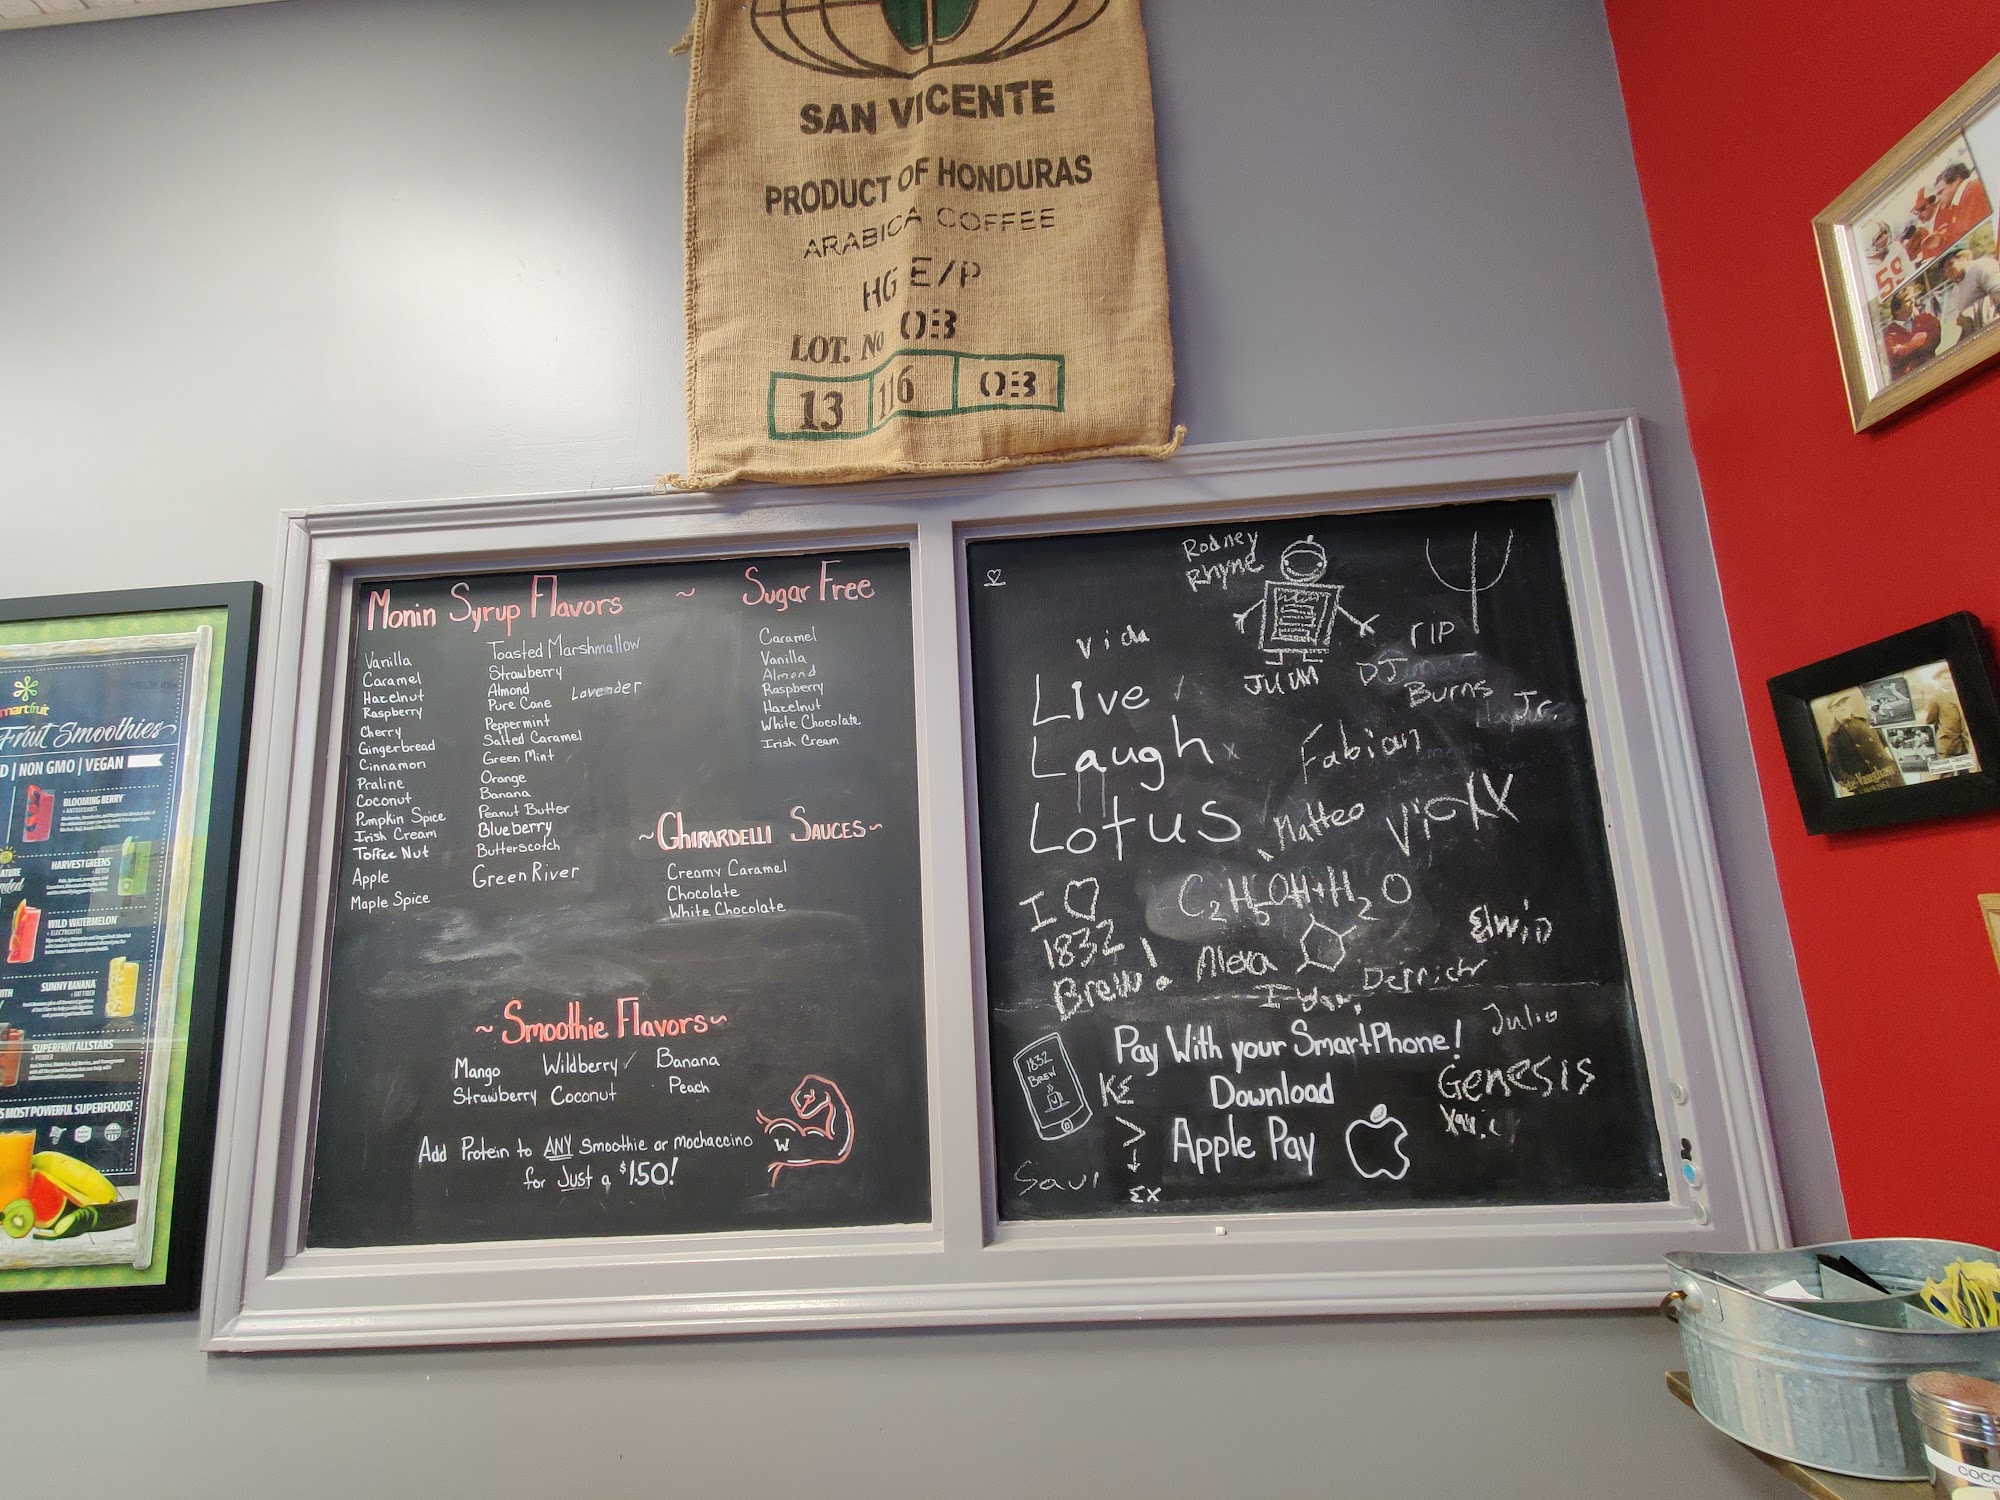 SAN VICENTE
PRODUCT OF HONDURAS
ARABICA COFFEE
HG E/P
LOT. No 03
13 116 03
Monin Syrup Flavors ~ Sugar Free
Vanilla
Caramel
Hazelnut
Raspberry
Cherry
Gingerbread
Cinnamon
Praline
Coconut
Pumpkin Spice
Irish Cream
Toffee Nut
Apple
Maple Spice
Toasted Marshmallow
Strawberry
Almond
Lavender
Pure Cane
Peppermint
Salted Caramel
Green Mint
Orange
Banana
Peanut Butter
Blueberry
Butterscotch
Green River
Caramel
Vanilla
Almond
Raspberry
Hazelnut
White Chocolate
Irish Cream
~Ghirardelli Sauces~
Creamy Caramel
Chocolate
White Chocolate
~Smoothie Flavors~
Mango Wildberry Banana
Strawberry Coconut Peach
Add Protein to ANY Smoothie or mochaccino
for Just a $1.50!
W
Rodney
Rhyme
Vida
JUUM
rIP
DJ
Burns
Jr.
Live
Laugh
Lotus
Fabian
Matteo
C2H5OH+H2O
I ♡
1832
Brew!
Alexa
Elwin
Derrick
Julio
Pay With your SmartPhone!
Download
Apple Pay
1832
BREW
KΣ
>
ΣX
Genesis
Saul
smartfruit
Fruit Smoothies
NON GMO | VEGAN
BLOOMING BERRY
+ ANTIOXIDANTS
HARVEST GREENS
+ DETOX
WILD WATERMELON
+ ELECTROLYTES
SUNNY BANANA
+ DIET FIBER
SUPERFRUIT ALLSTARS
+ POWER
MOST POWERFUL SUPERFOODS!
59
COCO